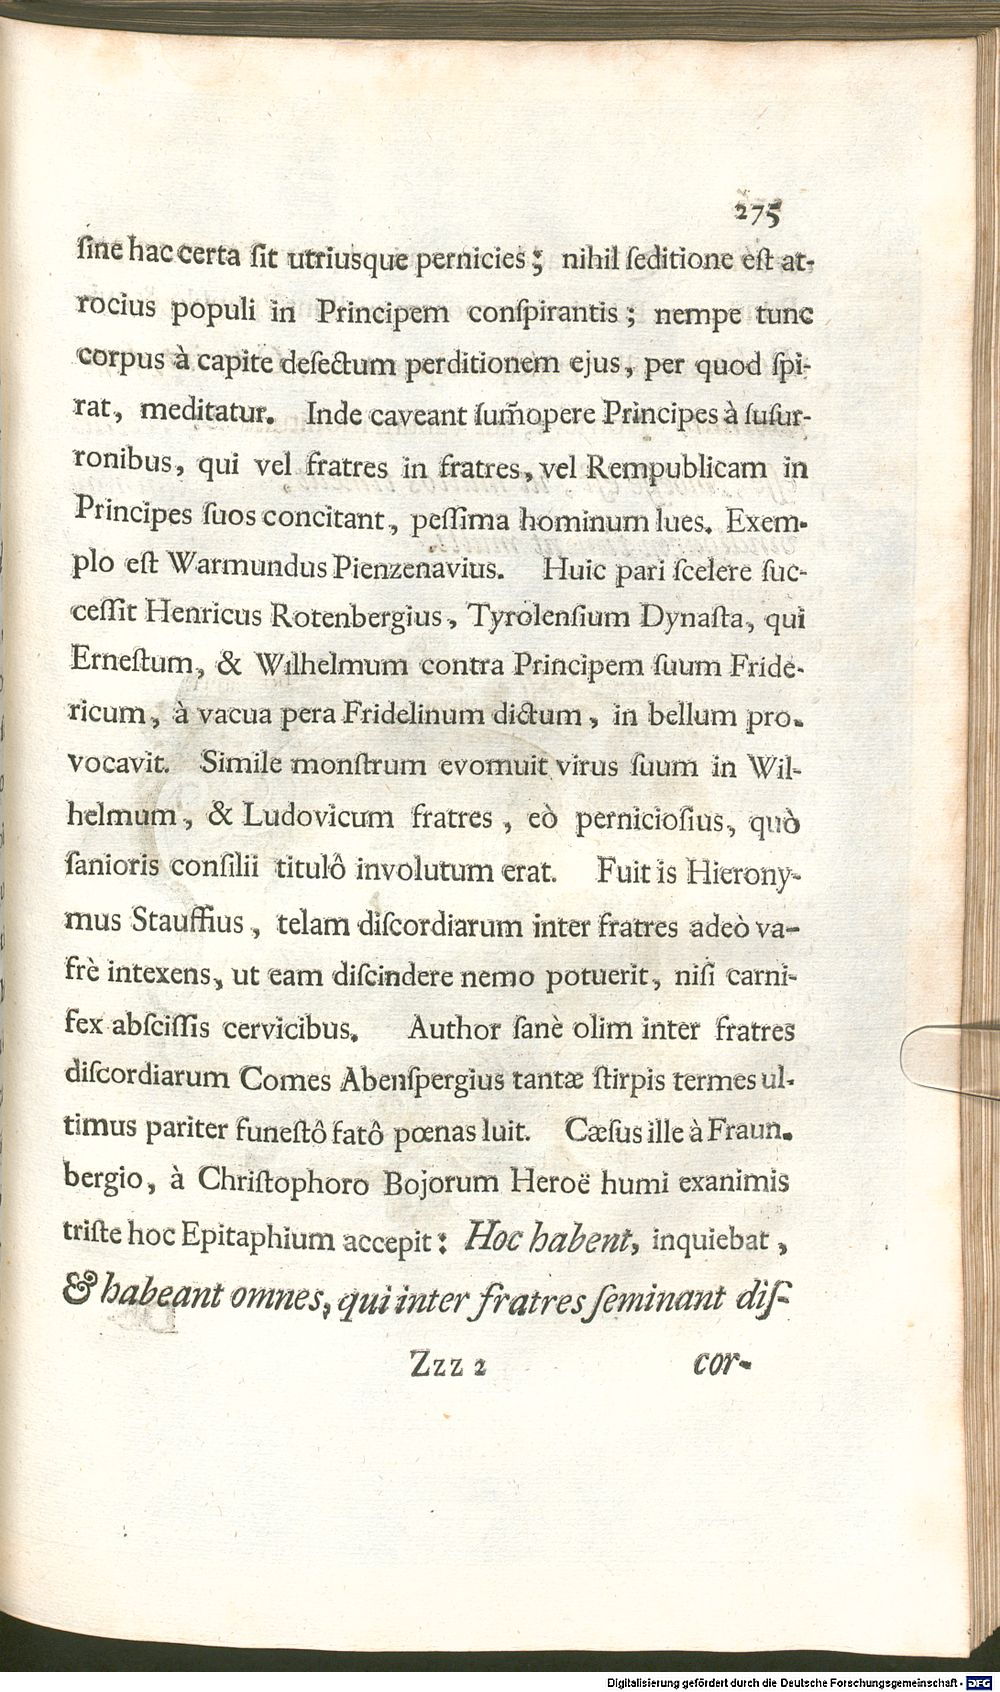 275
ſine hac certa ſit utriusque pernicies; nihil ſeditione eſt at-
rocius populi in Principem conſpirantis; nempe tunc
corpus à capite deſectum perditionem ejus, per quod ſpi-
rat, meditatur. Inde caveant ſum̃opere Principes à ſuſur-
ronibus, qui vel fratres in fratres, vel Rempublicam in
Principes ſuos concitant, peſſima hominum lues. Exem-
plo eſt Warmundus Pienzenavius. Huic pari ſcelere ſuc-
ceſſit Henricus Rotenbergius, Tyrolenſium Dynaſta, qui
Erneſtum, & Wilhelmum contra Principem ſuum Fride-
ricum, à vacua pera Fridelinum dictum, in bellum pro-
vocavit. Simile monſtrum evomuit virus ſuum in Wil-
helmum, & Ludovicum fratres, eò pernicioſius, quò
ſanioris conſilii titulô involutum erat. Fuit is Hierony-
mus Stauffius, telam diſcordiarum inter fratres adeò va-
frè intexens, ut eam diſcindere nemo potuerit, niſi carni-
fex abſciſſis cervicibus. Author ſanè olim inter fratres
diſcordiarum Comes Abenſpergius tantæ ſtirpis termes ul-
timus pariter funeſtô fatô pœnas luit. Cæſus ille à Fraun-
bergio, à Chriſtophoro Bojorum Heroë humi exanimis
triſte hoc Epitaphium accepit: Hoc habent, inquiebat,
& habeant omnes, qui inter fratres ſeminant diſ-
Zzz 2 cor-
Digitalisierung gefördert durch die Deutsche Forschungsgemeinschaft - DFG